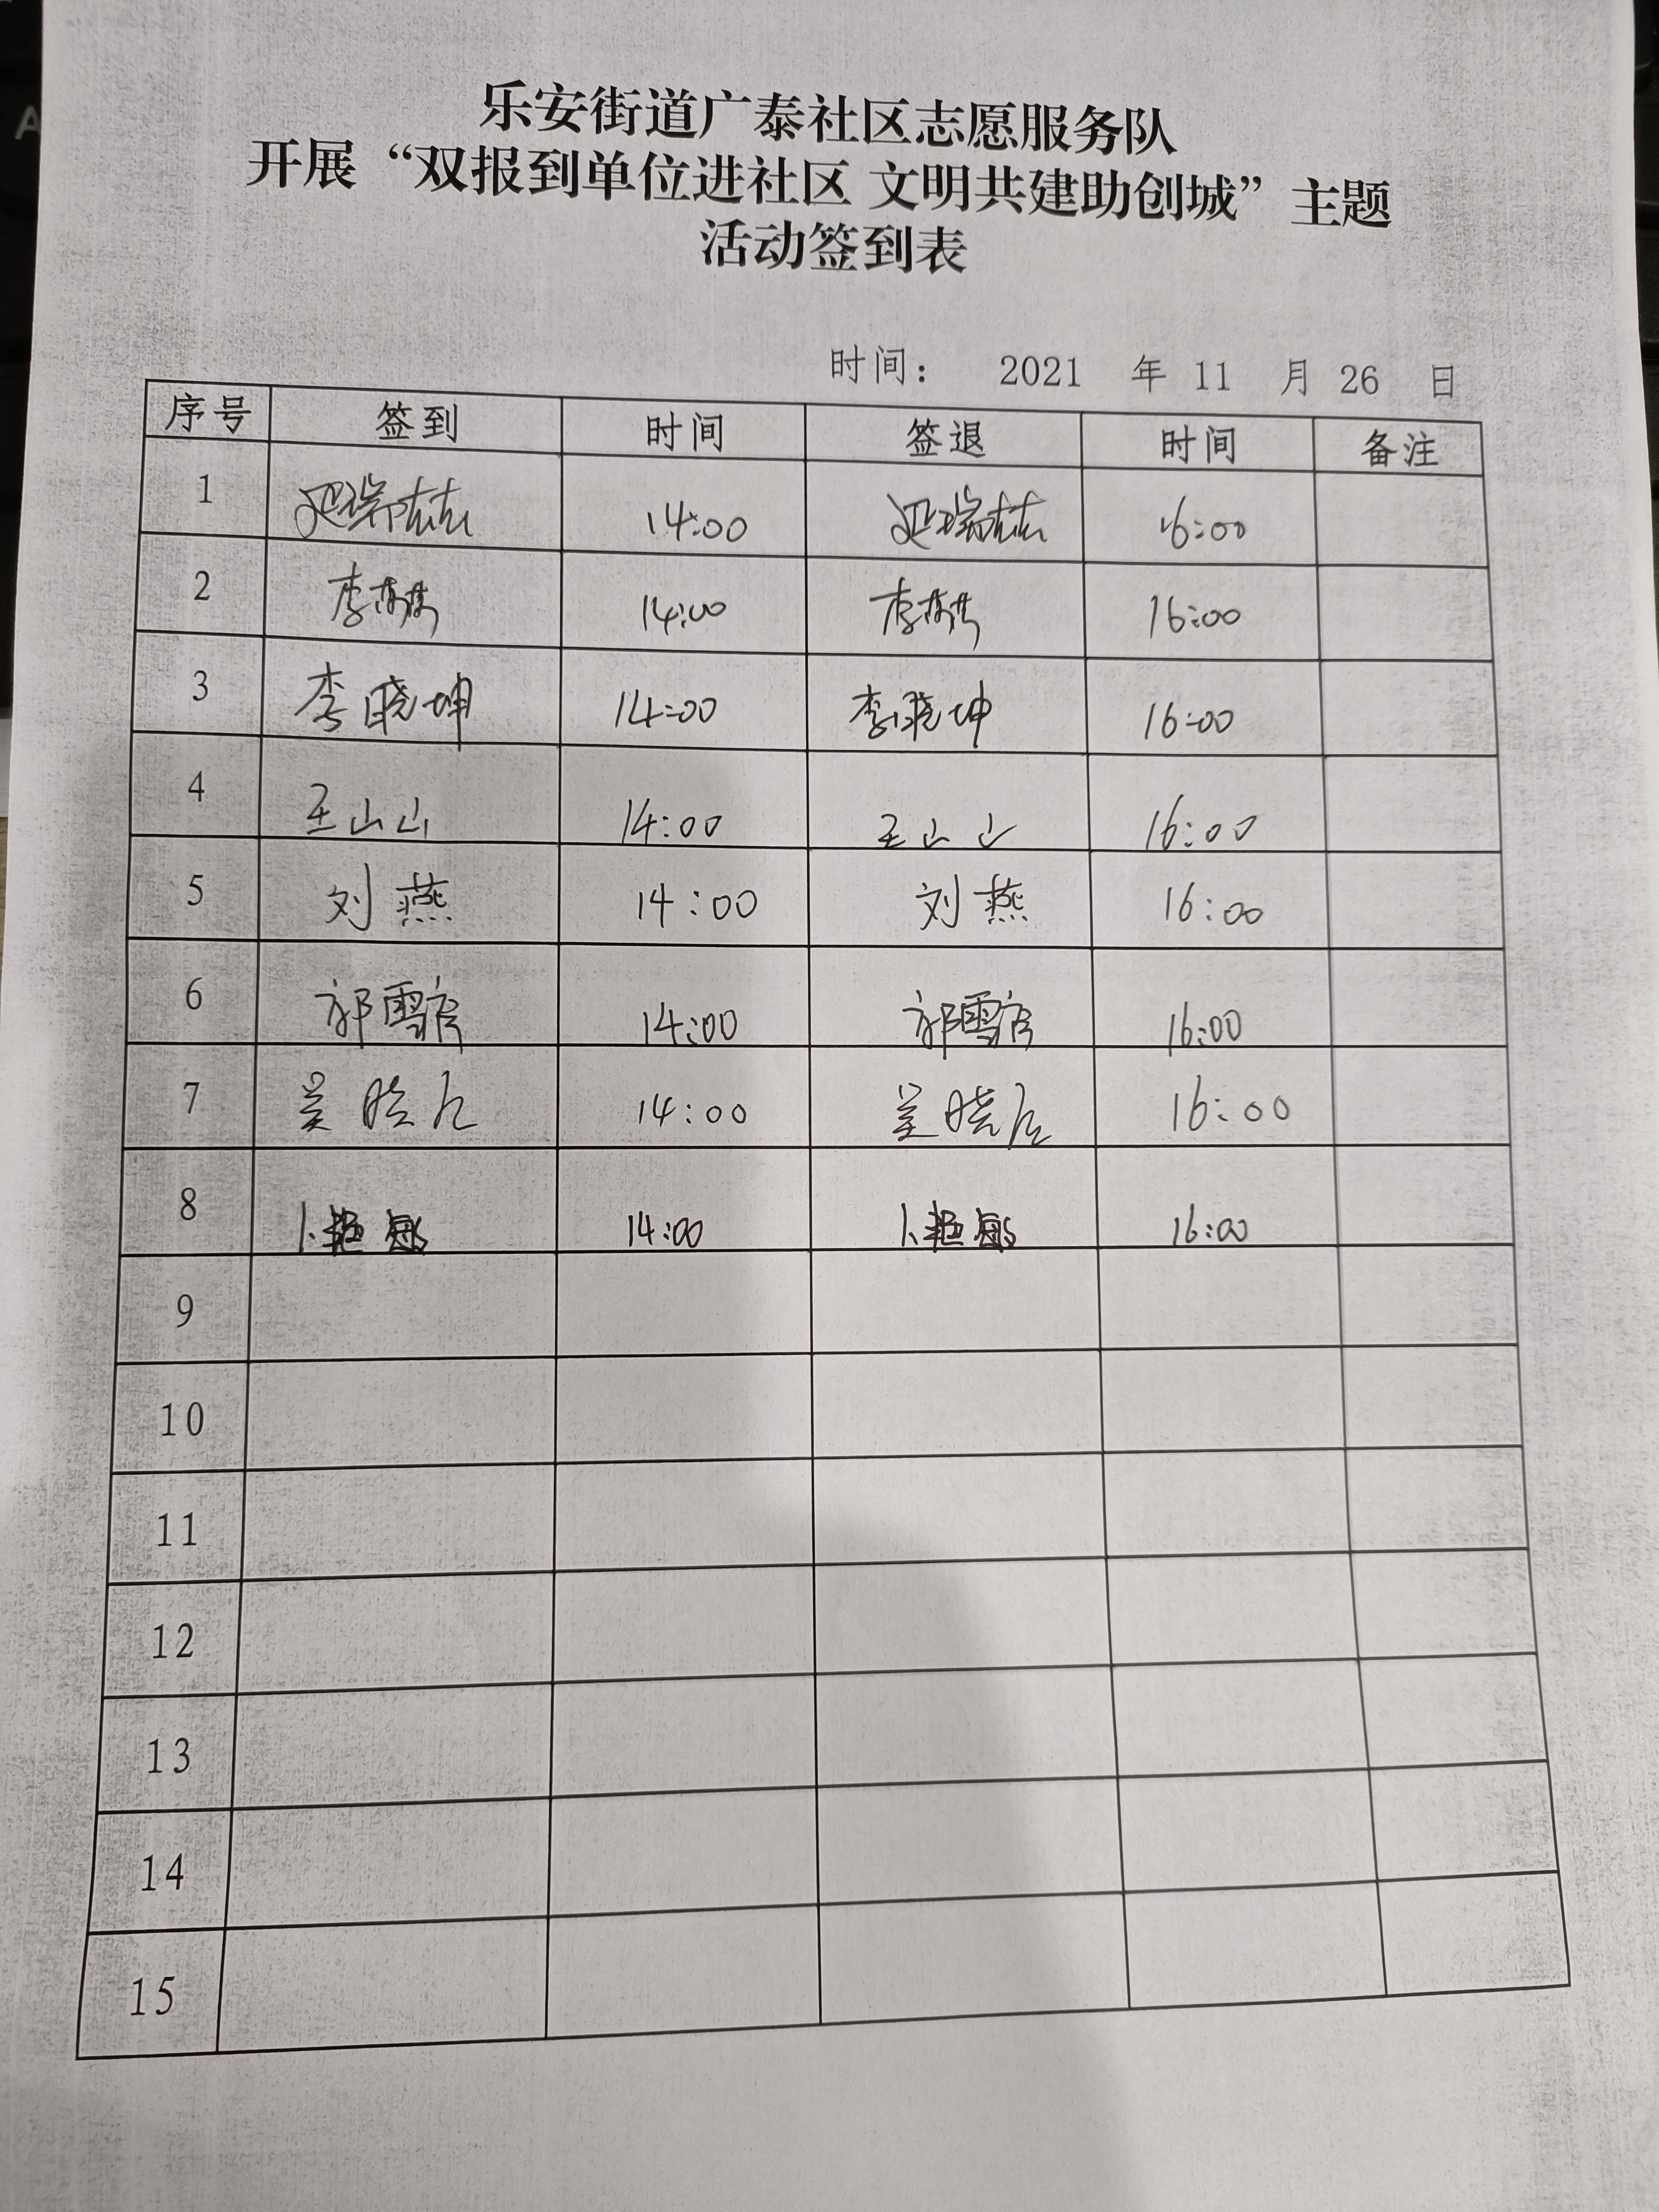 乐安街道广泰社区志愿服务队
开展“双报到单位进社区 文明共建助创城”主题
活动签到表
时间： 2021 年 11 月 26 日
序号 签到 时间 签退 时间 备注
1 14:00 16:00
2 李 14:00 李 16:00
3 李晓坤 14:00 李晓坤 16:00
4 王山山 14:00 王山山 16:00
5 刘燕 14:00 刘燕 16:00
6 郭雪 14:00 郭雪 16:00
7 吴晓 14:00 吴晓 16:00
8 卜艳敏 14:00 卜艳敏 16:00
9
10
11
12
13
14
15